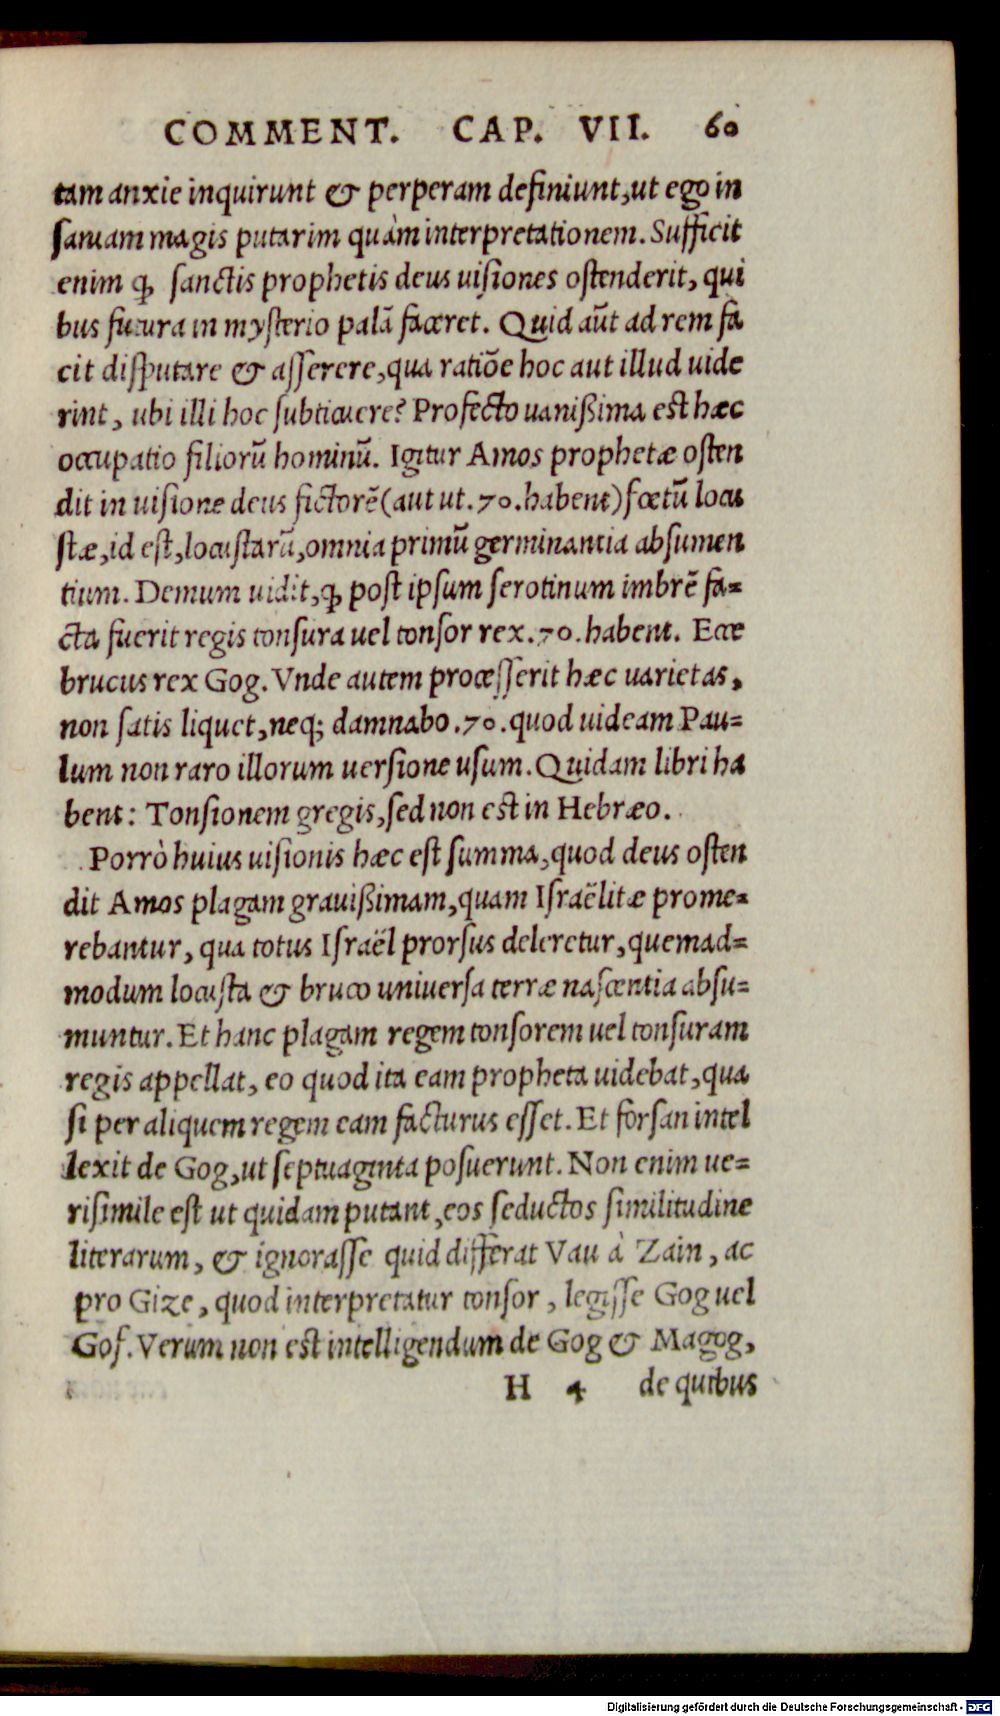 COMMENT. CAP. VII. 60
tam anxie inquirunt & perperam definiunt, ut ego in
ſaniam magis putarim quàm interpretationem. Sufficit
enim ꝙ ſanctis prophetis deus uiſiones oſtenderit, qui
bus futura in myſterio palã faceret. Quid aũt ad rem fa
cit diſputare & aſſerere, qua ratiõe hoc aut illud uide
rint, ubi illi hoc ſubticuere? Profecto uanißima est hæc
occupatio filiorũ hominũ. Igitur Amos prophetæ oſten
dit in uiſione deus fictorẽ (aut ut .70. habent) fœtũ locu
ſtæ, id eſt, locuſtarũ, omnia primũ germinantia abſumen
tium. Demum uidit, ꝙ poſt ipſum ſerotinum imbrẽ fa=
cta fuerit regis tonſura uel tonſor rex .70. habent. Ecce
brucus rex Gog. Vnde autem proceſſerit hæc uarietas,
non ſatis liquet, neq; damnabo .70. quod uideam Pau=
lum non raro illorum uerſione uſum. Quidam libri ha
bent: Tonſionem gregis, ſed non est in Hebræo.
Porrò huius uiſionis hæc eſt ſumma, quod deus oſten
dit Amos plagam grauißimam, quam Iſraëlitæ prome=
rebantur, qua totus Iſraël prorſus deleretur, quemad=
modum locuſta & bruco uniuerſa terræ naſcentia abſu=
muntur. Et hanc plagam regem tonſorem uel tonſuram
regis appellat, eo quod ita eam propheta uidebat, qua
ſi per aliquem regem eam facturus eſſet. Et forſan intel
lexit de Gog, ut ſeptuaginta poſuerunt. Non enim ue=
riſimile eſt ut quidam putant, eos ſeductos ſimilitudine
literarum, & ignoraſſe quid differat Vau à Zain, ac
pro Gize, quod interpretatur tonſor, legiſſe Gog uel
Goſ. Verum non est intelligendum de Gog & Magog,
H 4 de quibus
Digitalisierung gefördert durch die Deutsche Forschungsgemeinschaft - DFG